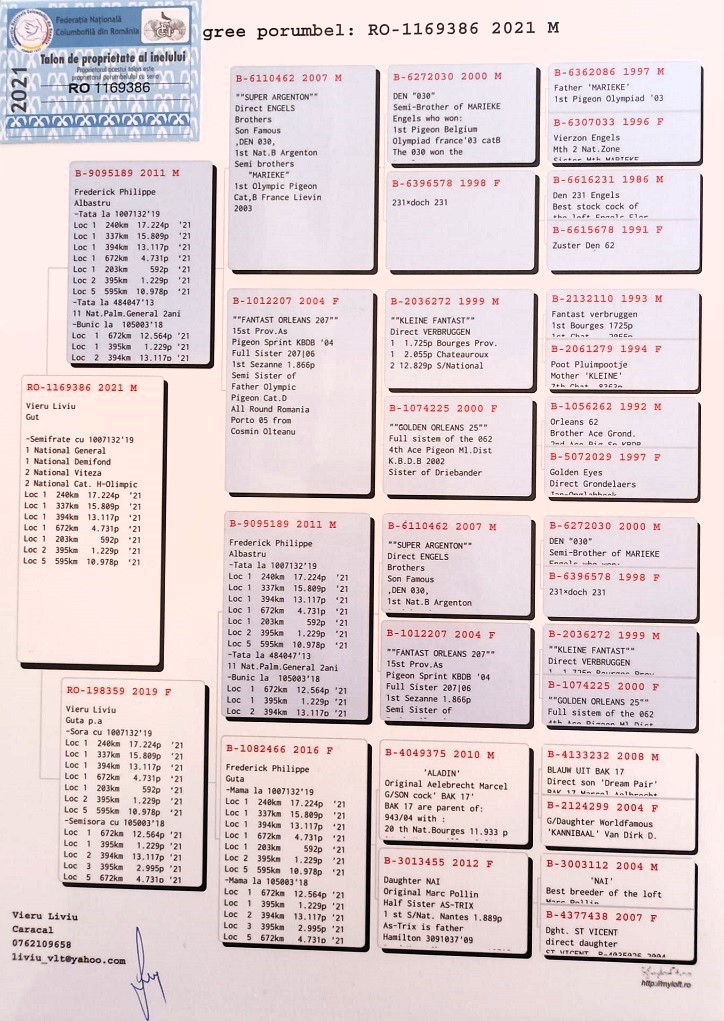 Federația Națională
Columbofilă din România
Talon de proprietate al inelului
Proprietarul acestui talon este
proprietarul porumbelului cu seria
RO 1169386
2021
gree porumbel: RO-1169386 2021 M
B-9095189 2011 M
Frederick Philippe
Albastru
-Tata la 1007132'19
Loc 1 240km 17.224p '21
Loc 1 337km 15.809p '21
Loc 1 394km 13.117p '21
Loc 1 672km 4.731p '21
Loc 1 203km 592p '21
Loc 2 395km 1.229p '21
Loc 5 595km 10.978p '21
-Tata la 484047'13
11 Nat.Palm.General 2ani
-Bunic la 105003'18
Loc 1 672km 12.564p '21
Loc 1 395km 1.229p '21
Loc 2 394km 13.117p '21
RO-1169386 2021 M
Vieru Liviu
Gut
-Semifrate cu 1007132'19
1 National General
1 National Demifond
2 National Viteza
2 National Cat. H-Olimpic
Loc 1 240km 17.224p '21
Loc 1 337km 15.809p '21
Loc 1 394km 13.117p '21
Loc 1 672km 4.731p '21
Loc 1 203km 592p '21
Loc 2 395km 1.229p '21
Loc 5 595km 10.978p '21
RO-198359 2019 F
Vieru Liviu
Guta p.a
-Sora cu 1007132'19
Loc 1 240km 17.224p '21
Loc 1 337km 15.809p '21
Loc 1 394km 13.117p '21
Loc 1 672km 4.731p '21
Loc 1 203km 592p '21
Loc 2 395km 1.229p '21
Loc 5 595km 10.978p '21
-Semisora cu 105003'18
Loc 1 672km 12.564p '21
Loc 1 395km 1.229p '21
Loc 2 394km 13.117p '21
Loc 3 395km 2.995p '21
Loc 5 672km 4.731p '21
B-6110462 2007 M
""SUPER ARGENTON""
Direct ENGELS
Brothers
Son Famous
,DEN 030,
1st Nat.B Argenton
Semi brothers
"MARIEKE"
1st Olympic Pigeon
Cat,B France Lievin
2003
B-1012207 2004 F
""FANTAST ORLEANS 207""
15st Prov.As
Pigeon Sprint KBDB '04
Full Sister 207|06
1st Sezanne 1.866p
Semi Sister of
Father Olympic
Pigeon Cat.D
All Round Romania
Porto 05 from
Cosmin Olteanu
B-9095189 2011 M
Frederick Philippe
Albastru
-Tata la 1007132'19
Loc 1 240km 17.224p '21
Loc 1 337km 15.809p '21
Loc 1 394km 13.117p '21
Loc 1 672km 4.731p '21
Loc 1 203km 592p '21
Loc 2 395km 1.229p '21
Loc 5 595km 10.978p '21
-Tata la 484047'13
11 Nat.Palm.General 2ani
-Bunic la 105003'18
Loc 1 672km 12.564p '21
Loc 1 395km 1.229p '21
Loc 2 394km 13.117p '21
B-1082466 2016 F
Frederick Philippe
Guta
-Mama la 1007132'19
Loc 1 240km 17.224p '21
Loc 1 337km 15.809p '21
Loc 1 394km 13.117p '21
Loc 1 672km 4.731p '21
Loc 1 203km 592p '21
Loc 2 395km 1.229p '21
Loc 5 595km 10.978p '21
-Mama la 105003'18
Loc 1 672km 12.564p '21
Loc 1 395km 1.229p '21
Loc 2 394km 13.117p '21
Loc 3 395km 2.995p '21
Loc 5 672km 4.731p '21
B-6272030 2000 M
DEN "030"
Semi-Brother of MARIEKE
Engels who won:
1st Pigeon Belgium
Olympiad france'03 catB
The 030 won the
B-6396578 1998 F
231×doch 231
B-2036272 1999 M
""KLEINE FANTAST""
Direct VERBRUGGEN
1 1.725p Bourges Prov.
1 2.055p Chateauroux
2 12.829p S/National
B-1074225 2000 F
""GOLDEN ORLEANS 25""
Full sistem of the 062
4th Ace Pigeon Ml.Dist
K.B.D.B 2002
Sister of Driebander
B-6110462 2007 M
""SUPER ARGENTON""
Direct ENGELS
Brothers
Son Famous
,DEN 030,
1st Nat.B Argenton
B-1012207 2004 F
""FANTAST ORLEANS 207""
15st Prov.As
Pigeon Sprint KBDB '04
Full Sister 207|06
1st Sezanne 1.866p
Semi Sister of
B-4049375 2010 M
'ALADIN'
Original Aelebrecht Marcel
G/SON cock' BAK 17'
BAK 17 are parent of:
943/04 with :
20 th Nat.Bourges 11.933 p
B-3013455 2012 F
Daughter NAI
Original Marc Pollin
Half Sister AS-TRIX
1 st S/Nat. Nantes 1.889p
As-Trix is father
Hamilton 3091037'09
B-6362086 1997 M
Father 'MARIEKE'
1st Pigeon Olympiad '03
B-6307033 1996 F
Vierzon Engels
Mth 2 Nat.Zone
Sister Mth MARIEKE
B-6616231 1986 M
Den 231 Engels
Best stock cock of
the loft Engels
B-6615678 1991 F
Zuster Den 62
B-2132110 1993 M
Fantast verbruggen
1st Bourges 1725p
B-2061279 1994 F
Poot Pluimpootje
Mother 'KLEINE'
B-1056262 1992 M
Orleans 62
Brother Ace Grond.
B-5072029 1997 F
Golden Eyes
Direct Grondelaers
B-6272030 2000 M
DEN "030"
Semi-Brother of MARIEKE
Engels who won:
B-6396578 1998 F
231×doch 231
B-2036272 1999 M
""KLEINE FANTAST""
Direct VERBRUGGEN
1 1.725p Bourges Prov
B-1074225 2000 F
""GOLDEN ORLEANS 25""
Full sistem of the 062
4th Ace Pigeon Ml.Dist
B-4133232 2008 M
BLAUW UIT BAK 17
Direct son 'Dream Pair'
B-2124299 2004 F
G/Daughter Worldfamous
'KANNIBAAL' Van Dirk D.
B-3003112 2004 M
'NAI'
Best breeder of the loft
Marc Pollin
B-4377438 2007 F
Dght. ST VICENT
direct daughter
Vieru Liviu
Caracal
0762109658
liviu_vlt@yahoo.com
http://myloft.ro